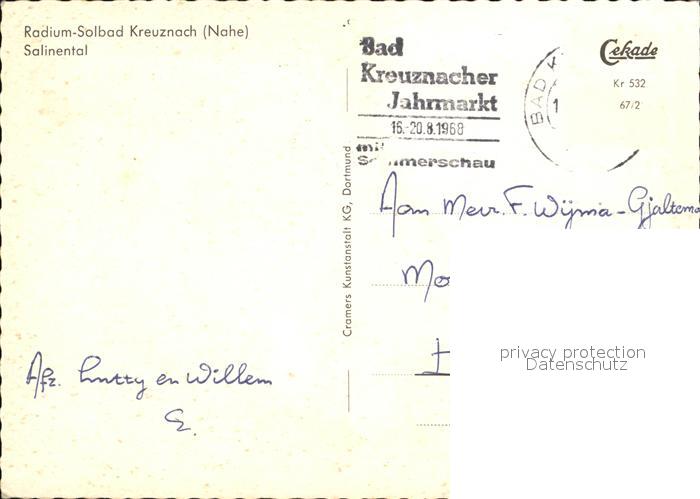 Radium-Solbad Kreuznach (Nahe)
Salinental
Bad
Kreuznacher
Jahrmarkt
16.-20.8.1968
mit
Sommerschau
BAD K
1
Cekade
Kr 532
67/2
Cramers Kunstanstalt KG, Dortmund
Aan Mevr. F. Wijma-Gjaltema
Mo
privacy protection
Datenschutz
Afz. en Willem